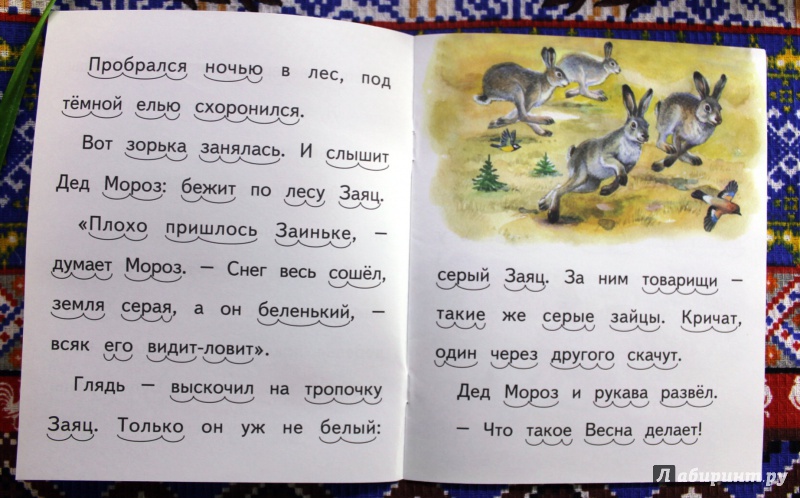 Пробрался ночью в лес, под
тёмной елью схоронился.
Вот зорька занялась. И слышит
Дед Мороз: бежит по лесу Заяц.
«Плохо пришлось Заиньке, –
думает Мороз. – Снег весь сошёл,
земля серая, а он беленький, –
всяк его видит-ловит».
Глядь – выскочил на тропочку
Заяц. Только он уж не белый:
серый Заяц. За ним товарищи –
такие же серые зайцы. Кричат,
один через другого скачут.
Дед Мороз и рукава развёл.
– Что такое Весна делает!
Лабиринт.ру